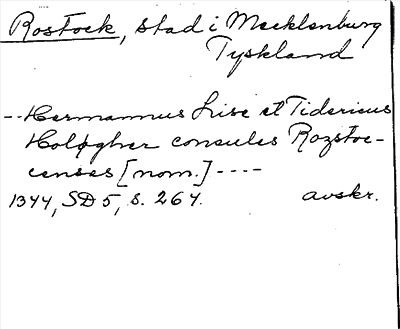 Rostock, stad i Mecklenburg
Tyskland
--Hermannus Lise et Tidericus
Holøgher consules Rozstoc-
censes [nom.] ----
1344, SD 5, s. 264. avskr.